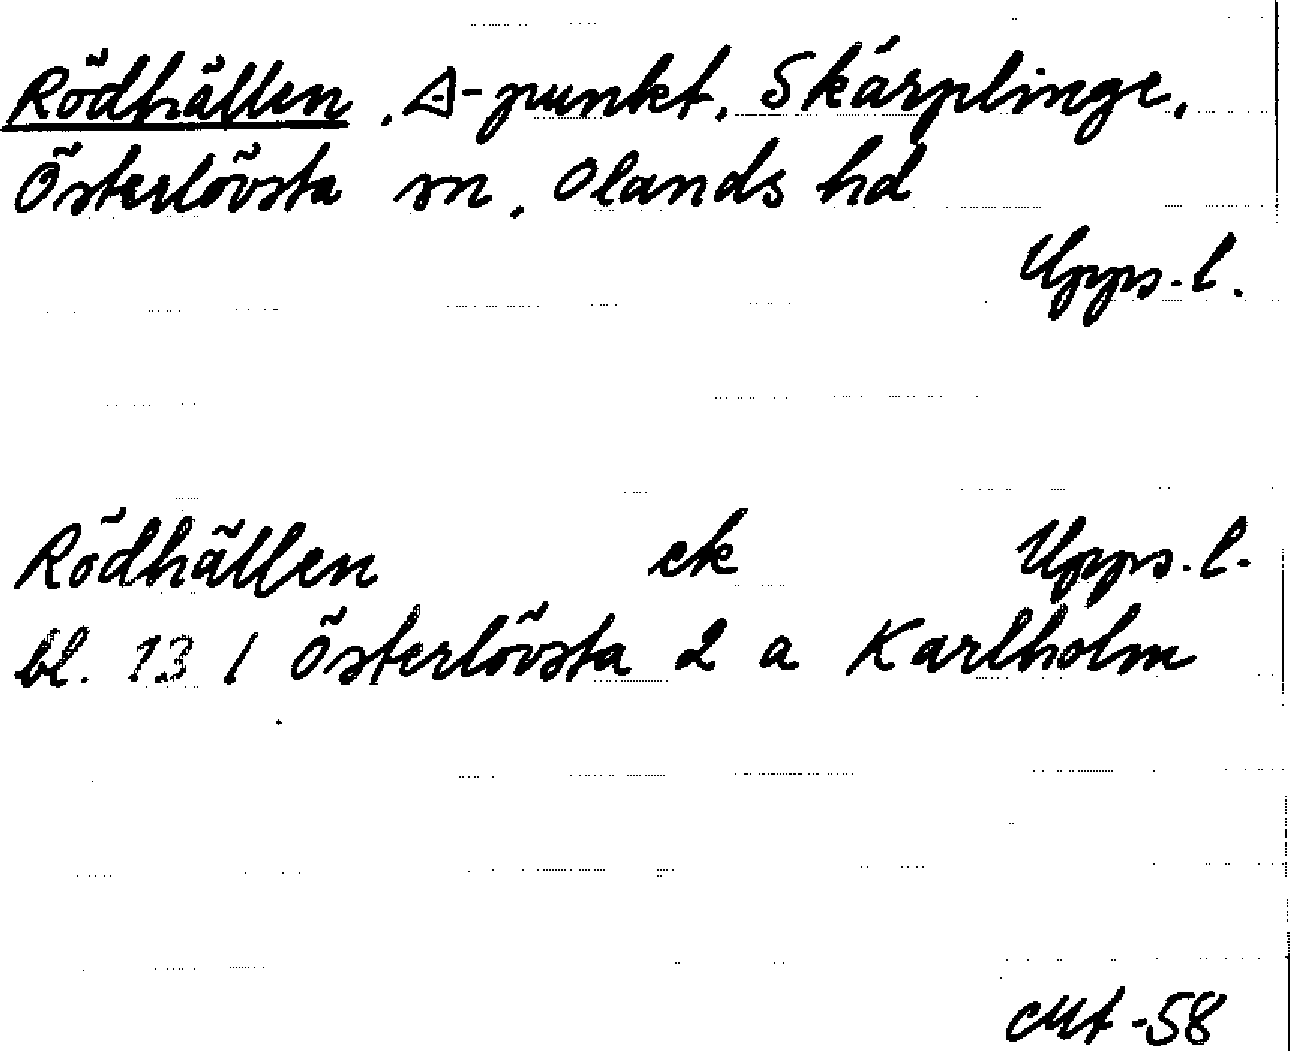 Rödhällen, △-punkt, Skärplinge,
Österlövsta sn, Olands hd
Upps.l.
Rödhällen ek Upps.l.
bl. 13 / Österlövsta 2 a Karlholm
-58